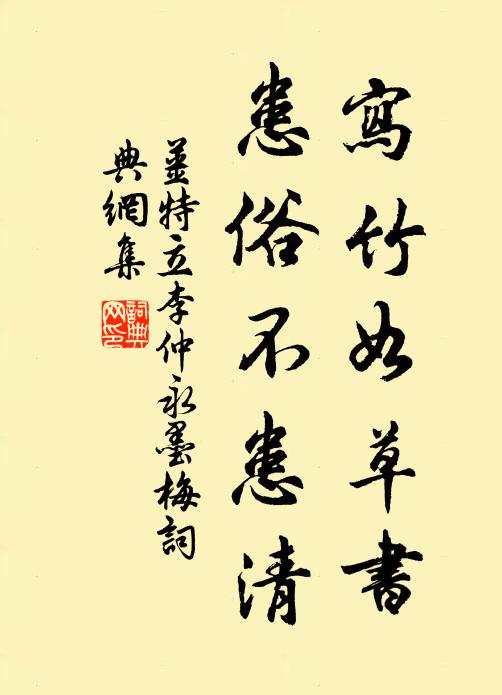 寫竹如草書
患俗不患清
姜特立李仲永墨梅詞
典網集
詞典網印